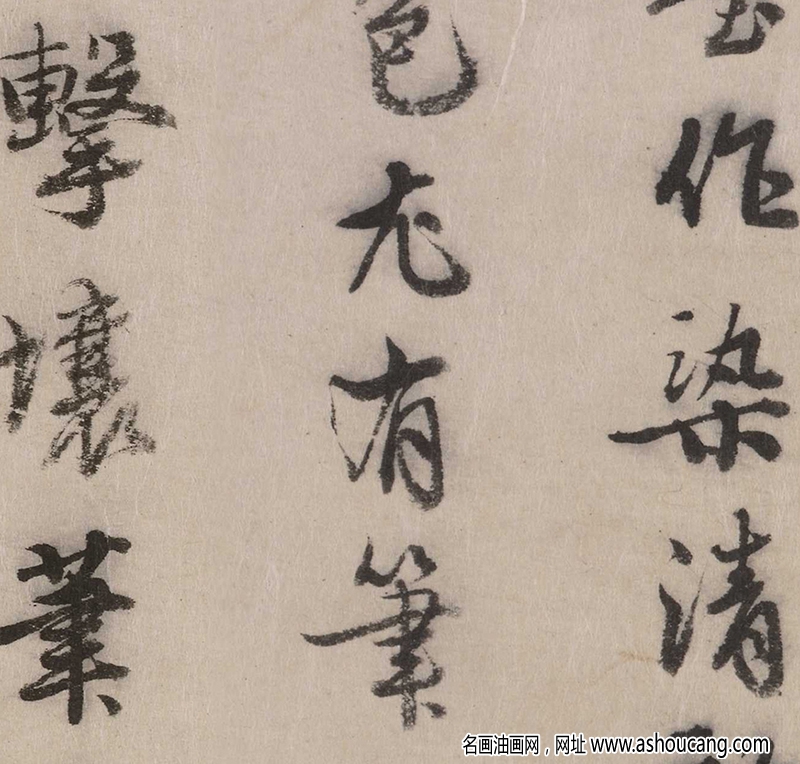 作染清
色尤有筆
擊壤筆
名画油画网，网址 www.ashoucang.com